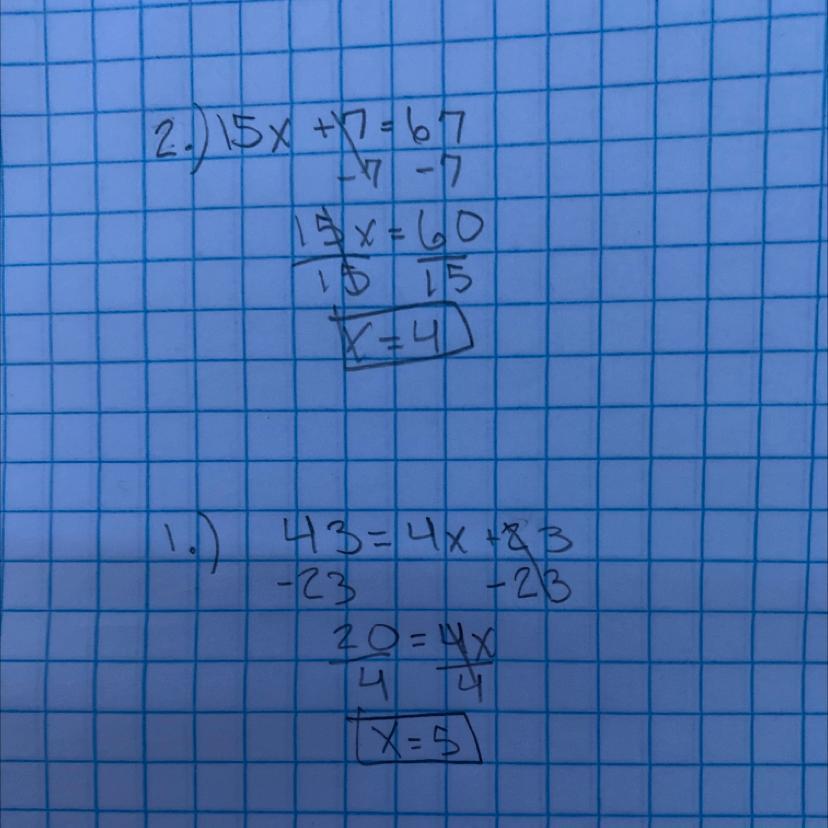 2.) 15x + 7 = 67
-7 -7
15x = 60
15 15
x = 4
1.) 43 = 4x + 23
-23 -23
20 = 4x
4 4
x = 5